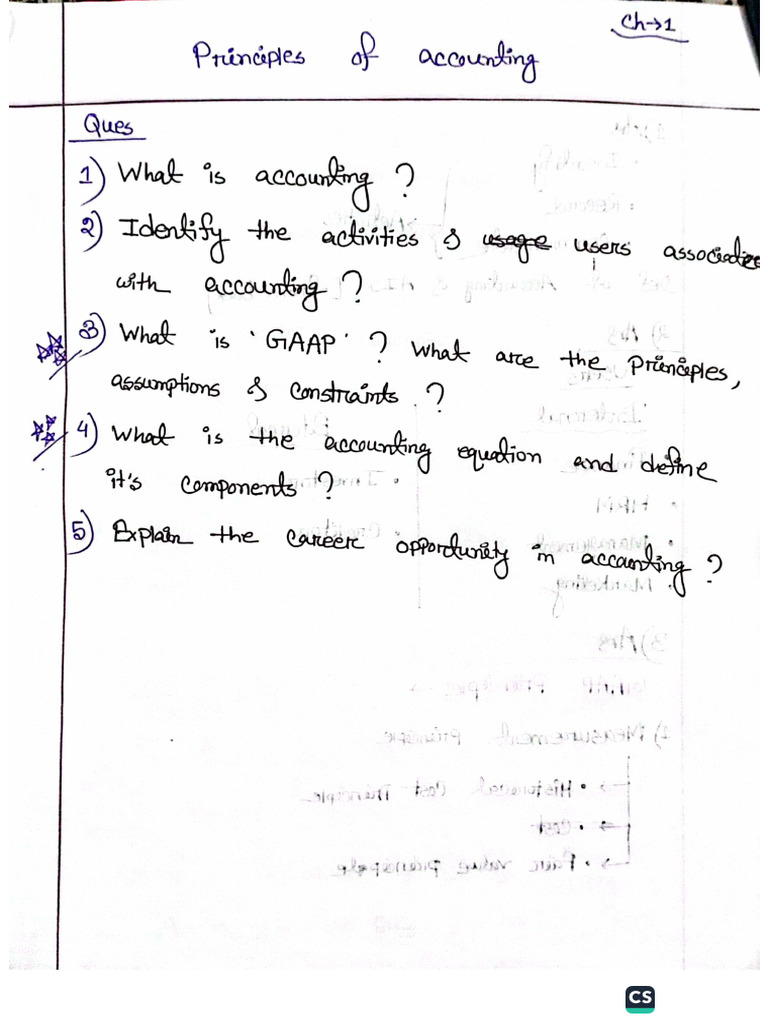 Ch→1
Principles of accounting
Ques
1) What is accounting ?
2) Identify the activities & usage users associated
with accounting ?
3) What is 'GAAP' ? What are the Principles,
assumptions & constraints. ?
4) What is the accounting equation and define
it's components ?
5) Explain the career opportunity in accounting ?
CS